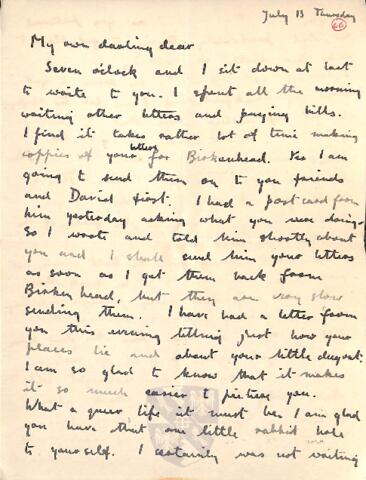 July 13 Thursday
66
My own darling dear
Seven o'clock and I sit down at last
to write to you. I spent all the morning
writing other letters and paying bills.
I find it takes rather lot of time making
coppies of your letters for Birkenhead. Yes I am
going to send them on to you friends
and David first. I had a post card from
him yesterday asking what you were doing-
so I wrote and told him shortly about
you and I shall send him your letters
as soon as I get them back from
Birkenhead, but they are very slow
sending them. I have had a letter from
you this evening telling just how your
places lie and about your little dugout.
I am so glad to know that it makes
it so much easier to picture you.
What a queer life it must be. I am glad
you have that one little rabbit hole
to yourself. I certainly was not waiting